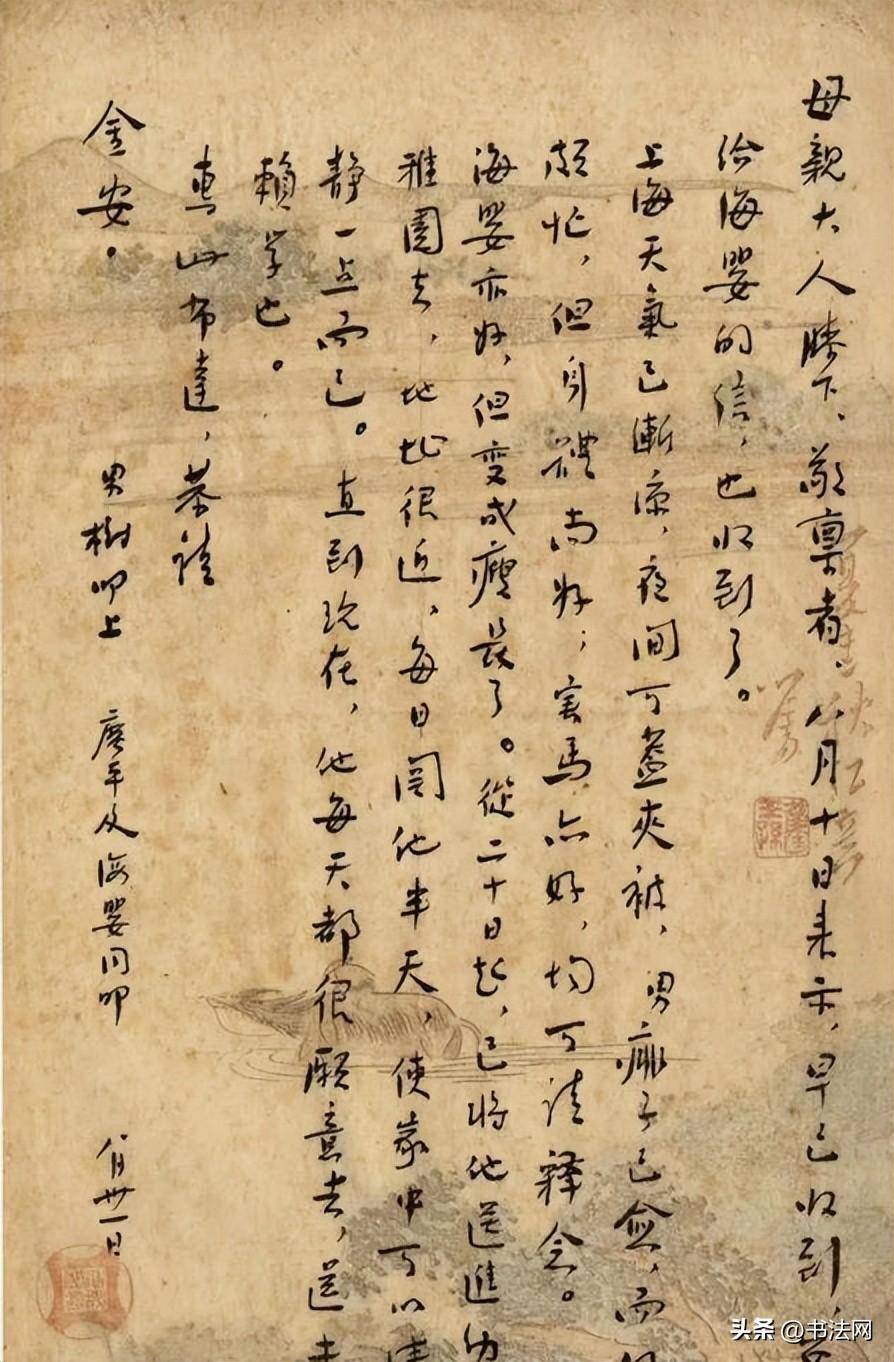 母親大人膝下,敬稟者,八月十日来示,早已收到,
给海嬰的信,也收到了。
上海天氣已漸涼,夜間可蓋夾被,男痱子已愈,而
颇忙,但身體尚好;害馬亦好,均可请释念。
海嬰亦好,但变成瘦長了。從二十日起,已将他送進幼
稚園去,地址很近,每日関他半天,使家中可以清
静一点而已。直到现在,他每天都很願意去,還未
賴学也。
專此布達,恭请
金安。
男樹叩上 廣平及海嬰同叩 八月卅一日
头条 @书法网